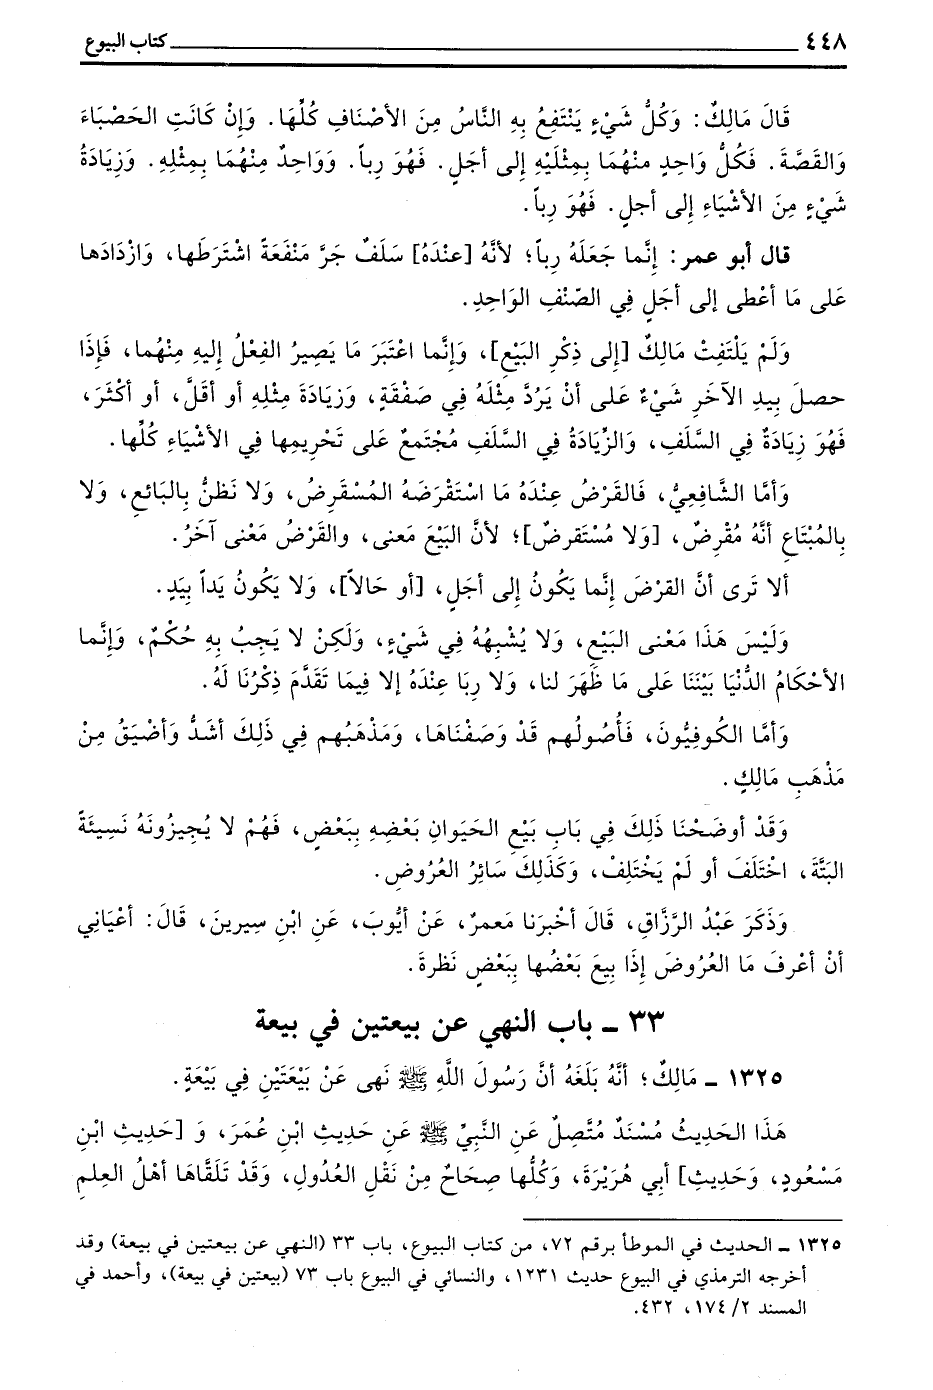 ٤٤٨ كتاب البيوع
قَالَ مَالِكٌ: وَكُلُّ شَيْءٍ يَنْتَفِعُ بِهِ النَّاسُ مِنَ الأصْنَافِ كُلِّهَا. وَإِنْ كَانَتِ الحَصْبَاءَ
وَالقَصَّةَ. فَكُلُّ وَاحِدٍ مِنْهُمَا بِمِثْلَيْهِ إِلى أجَلٍ. فَهُوَ رِباً. وَوَاحِدٌ مِنْهُمَا بِمِثْلِهِ. وَزِيَادَةُ
شَيْءٍ مِنَ الأشْيَاءِ إِلى أجلٍ. فَهُوَ رِباً.
قال أبو عمر: إِنَّما جَعَلَهُ رِباً؛ لأنَّهُ [عِنْدَهُ] سَلَفٌ جَرَّ مَنْفَعَةً اشْتَرَطَها، وَازْدَادَها
عَلى مَا أعْطى إلى أجَلٍ فِي الصّنْفِ الوَاحِدِ.
وَلَمْ يَلْتَفِتْ مَالِكٌ [إلى ذِكْرِ البَيْعِ]، وَإِنَّما اعْتَبَرَ مَا يَصِيرُ الفِعْلُ إليهِ مِنْهُما، فَإِذَا
حصلَ بِيدِ الآخَرِ شَيْءٌ عَلى أنْ يَرُدَّ مِثْلَهُ فِي صَفْقَةٍ، وَزِيَادَةَ مِثْلِهِ أو أقَلَّ، أو أكْثَرَ،
فَهُوَ زِيَادَةٌ فِي السَّلَفِ، وَالزِّيَادَةُ فِي السَّلَفِ مُجْتَمعٌ عَلى تَحْرِيمِها فِي الأشْيَاءِ كُلِّها.
وَأمَّا الشَّافِعِيُّ، فَالقَرْضُ عِنْدَهُ مَا اسْتَقْرَضَهُ المُسْقَرِضُ، وَلا نَظنُّ بِالبَائعِ، وَلا
بِالمُبْتَاعِ أنَّهُ مُقْرِضٌ، [وَلا مُسْتَقرضٌ]؛ لأنَّ البَيْعَ مَعنى، والقَرْضُ مَعْنى آخَرُ.
ألا تَرى أنَّ القرْضَ إِنَّما يَكُونُ إلى أجَلٍ، [أو حَالاً]، وَلا يَكُونُ يَداً بِيَدٍ.
وَلَيْسَ هَذَا مَعْنى البَيْعِ، وَلا يُشْبِهُهُ فِي شَيْءٍ، وَلَكِنْ لا يَجِبُ بِهِ حُكْمٌ، وَإِنَّما
الأحْكَامُ الدُّنْيَا بَيْنَنَا عَلى مَا ظَهَرَ لنا، وَلا رِبَا عِنْدَهُ إلا فِيمَا تَقَدَّمَ ذِكْرُنَا لَهُ.
وَأمَّا الكُوفِيُّونَ، فَأُصُولُهم قَدْ وَصَفْنَاهَا، وَمَذْهَبُهم فِي ذَلِكَ أشَدُّ وَأضْيَقُ مِنْ
مَذْهَبِ مَالِكٍ.
وَقَدْ أوضَحْنَا ذَلِكَ فِي بَابِ بَيْعِ الحَيَوانِ بَعْضِهِ بِبَعْضٍ، فَهُمْ لا يُجِيزُونَهُ نَسِيئَةً
البَتَّةَ، اخْتَلَفَ أو لَمْ يَخْتَلِفْ، وَكَذَلِكَ سَائِرُ العُرُوضِ.
وَذَكَرَ عَبْدُ الرَّزَّاقِ، قَالَ أخْبرَنا مَعمرٌ، عَنْ أيُّوبَ، عَنِ ابْنِ سِيرينَ، قَالَ: أعْيَاني
أنْ أعْرِفَ مَا العُرُوضَ إِذَا بِيعَ بَعْضُها بِبَعْضٍ نَظرةَ.
٣٣ ـ باب النهي عن بيعتين في بيعة
١٣٢٥ ـ مَالِكٌ؛ أنَّهُ بَلَغَهُ أنَّ رَسُولَ اللَّهِ ﷺ نَهى عَنْ بَيْعَتَيْنِ فِي بَيْعَةٍ.
هَذَا الحَدِيثُ مُسْنَدٌ مُتَّصِلٌ عَنِ النَّبِيِّ ﷺ عَنِ حَدِيثِ ابْنِ عُمَرَ، وَ [حَدِيثِ ابْنِ
مَسْعُودٍ، وَحَدِيثِ] أبِي هُرَيْرَةَ، وَكُلُّها صِحَاحٌ مِنْ نَقْلِ العُدُولِ، وَقَدْ تَلَقَّاهَا أهْلُ العِلمِ
١٣٢٥ ـ الحديث في الموطأ برقم ٧٢، من كتاب البيوع، باب ٣٣ (النهي عن بيعتين في بيعة) وقد
أخرجه الترمذي في البيوع حديث ١٢٣١، والنسائي في البيوع باب ٧٣ (بيعتين في بيعة)، وأحمد في
المسند ٢/ ١٧٤، ٤٣٢.